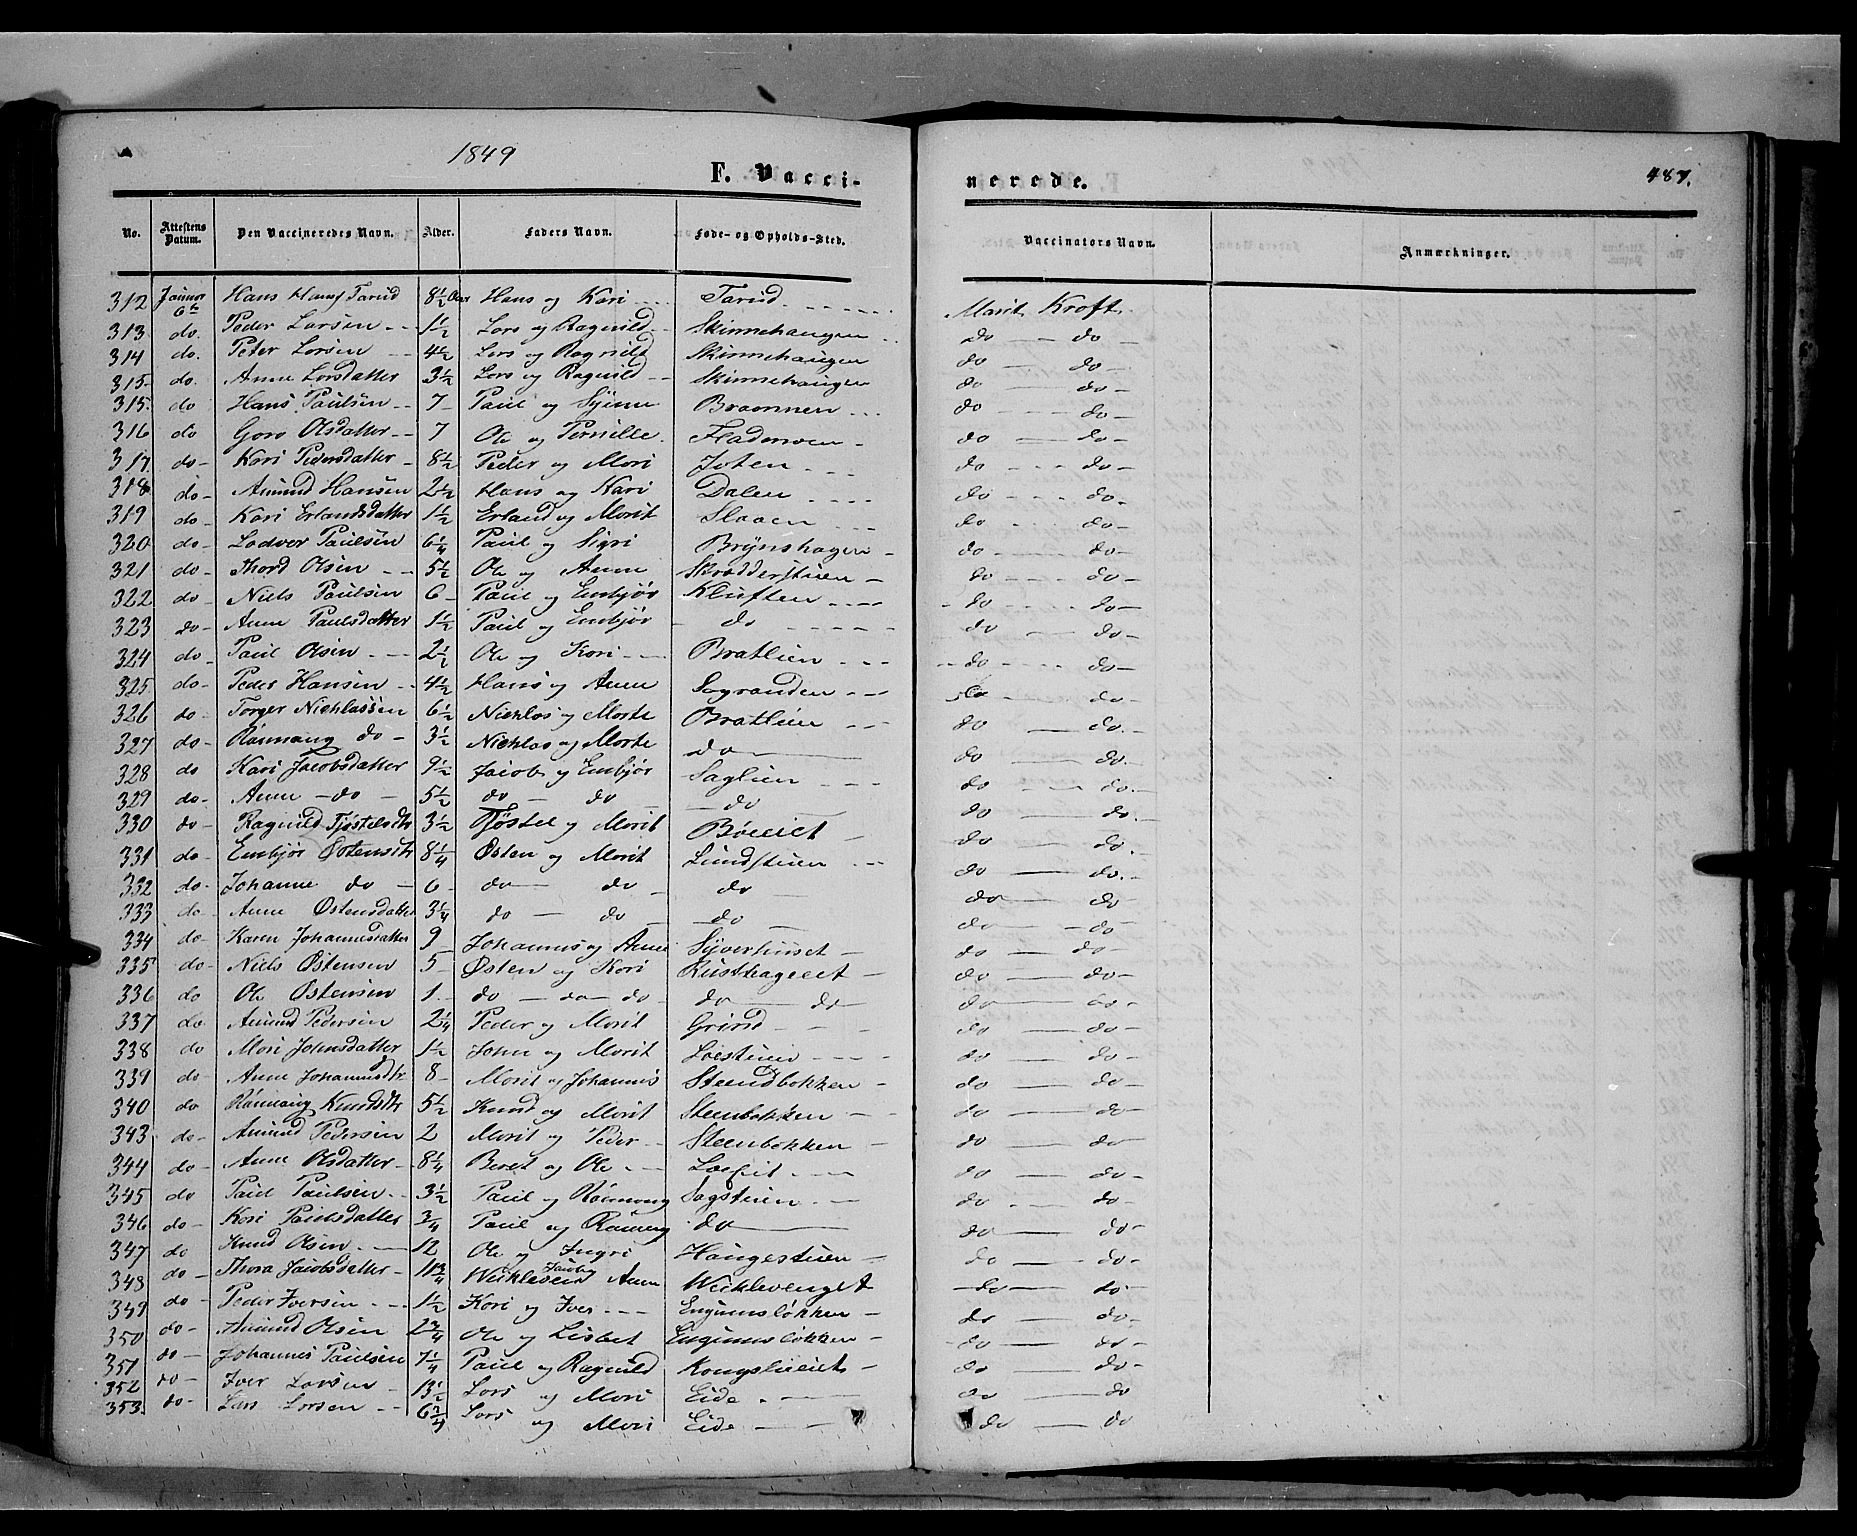 1849
F. Vacci-
nerede.
487.
No. Attestens Datum. Den Vaccineredes Navn. Alder. Faders Navn. Føde- og Opholds-Sted. Vaccinators Navn. Anmærkninger.
312 6te Hans Tarud 8½ Aar Hans og Kari Tarud Marit Kroft
313 do. Peder Larsen 1½ Lars og Ragnild Skinnehaugen do do
314 do. Peter Larsen 4½ Lars og Ragnild Skinnehaugen do do
315 do. Anne Larsdatter 3½ Lars og Ragnild Skinnehaugen do do
315. do Hans Paulsen 7 Paul og Braannen do do
316 do Goro Olsdatter 7 Ole og Pernille do do
317 do Kari Pedersdatter 8½ Peder og Mari Joten do do
318 do Amund Hansen 2½ Hans og Kari Dalen do do
319 do Kari Erlandsdatter 1½ Erland og Marit Slaaen do do
320 do Lodver Paulsen 6¼ Paul og Sigri Brynshagen do do
321 do Thord Olsen 5½ Ole og Anne Skrædderstuen do do
322 do Niels Paulsen 6 Paul og Embjør Kluften do do
323 do Anne Paulsdatter 1½ Paul og Embjør do do do
324 do Paul Olsen 2½ Ole og Kari Bratlien do do
325 do Peder Hansen 4½ Hans og Anne Sagranden do do
326 do Torger Nicklassen 6½ Nicklas og Marte Bratlien do do
327 do Rannaug do 3½ Nicklas og Marte do do do
328 do Kari Jacobsdatter 9½ Jacob og Embjør Saglien do do
329 do Anne do 5½ do do do do do
330 do Ragnild Tjøstelsdtr 3½ Tjøstel og Marit do do
331 do Embjør Østensdtr 8¼ Østen og Marit Lundstuen do do
332 do Johanne do 6 do do do do do
333 do Anne Østensdatter 3¼ do do do do do
334 do Karen Johannesdatter 9 Johannes og Anne Syverhuset do do
335 do Niels Østensen 5 Østen og Kari Rusthageeiet do do
336 do Ole Østensen 1 do do do do do do do
337 do Amund Pedersen 2¼ Peder og Marit Grind do do
338 do Mari Johnsdatter 1½ John og Marit do do
339 do Anne Johannesdtr 8 Marit og Johannes Steenbokken do do
340 do Rannaug Knudsdtr 5½ Knud og Marit Steenbokken do do
343 do Amund Pedersen 2 Marit og Peder Steenbokken do do
344 do Anne Olsdatter 8¼ Beret og Ole do do
345 do Paul Paulsen 3½ Paul og Rannaug Sagstuen do do
346 do Kari Paulsdatter ¾ Paul og Rannaug do do do
347 do Knud Olsen 12 Ole og Ingri Haugestuen do do
348 do Thora Jacobsdatter Jacob Anne Wicklevenget do do
349 do Peder Iversen 1½ Kari og Iver Engumsløkken do do
350 do Amund Olsen 2¾ Ole og Lisbet Engumsløkken do do
351 do Johannes Paulsen 7¼ Paul og Ragnild Kongslieeiet do do
352 do Iver Larsen 13½ Lars og Mari Eide do do
353 do Lars Larsen 6¾ Lars og Mari Eide do do